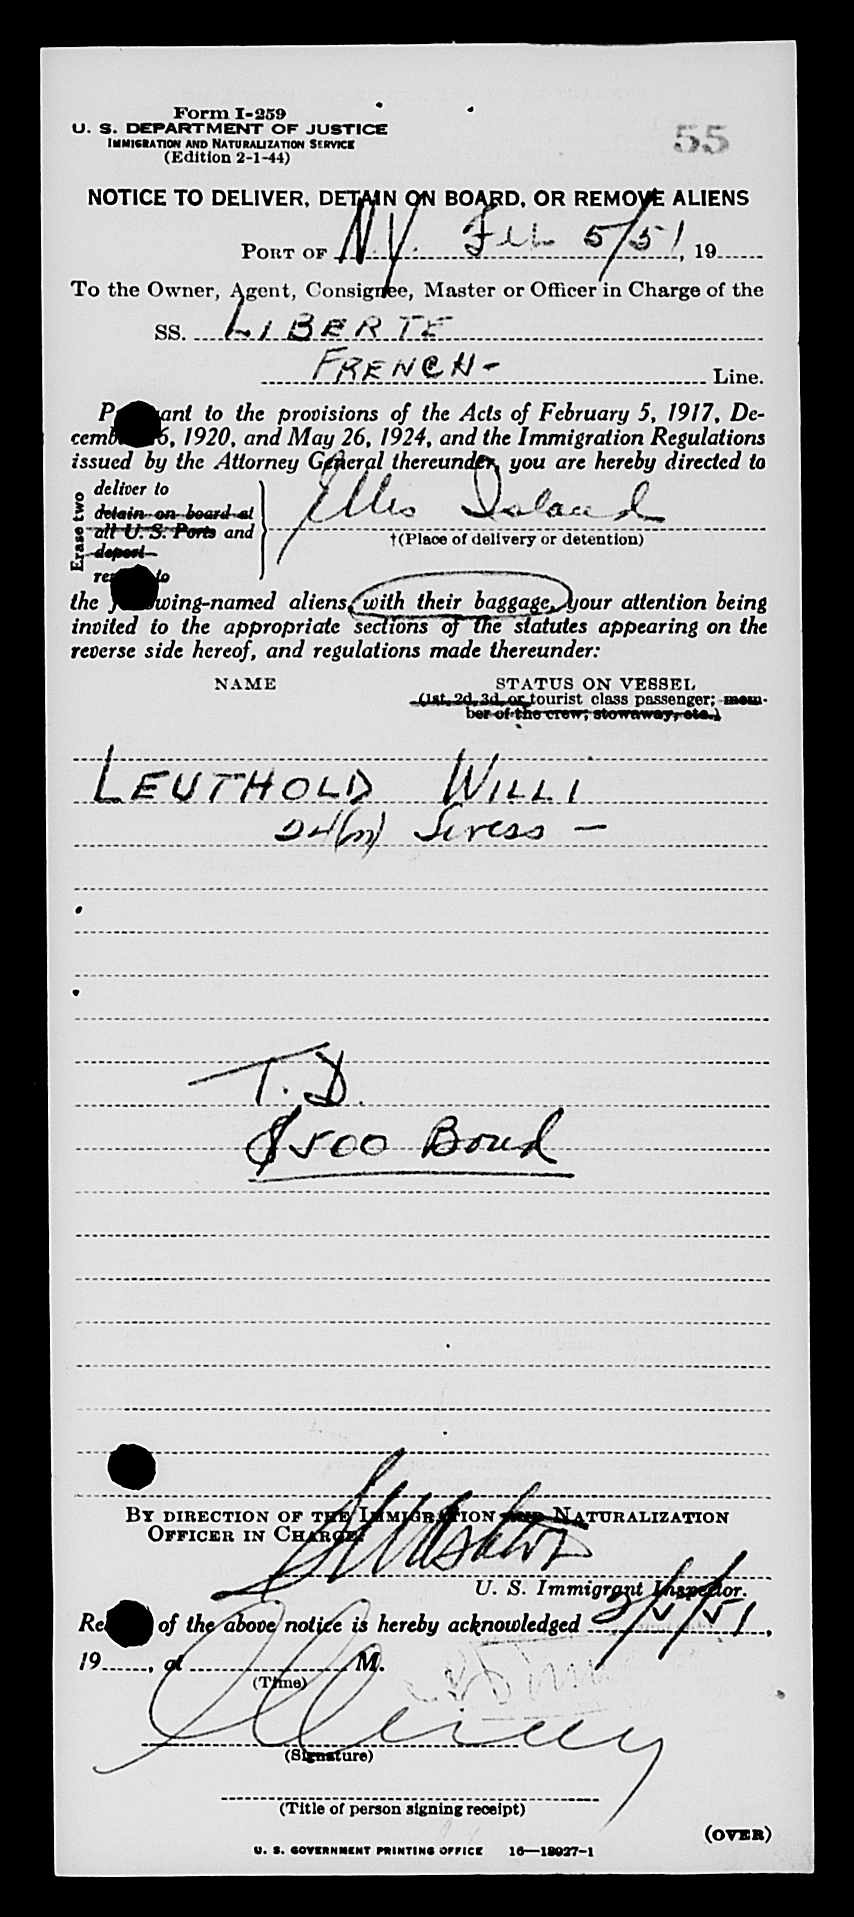 Form I-259
U. S. DEPARTMENT OF JUSTICE
IMMIGRATION AND NATURALIZATION SERVICE
(Edition 2-1-44)
55
NOTICE TO DELIVER, DETAIN ON BOARD, OR REMOVE ALIENS
PORT OF N.Y. Feb 5/51, 19
To the Owner, Agent, Consignee, Master or Officer in Charge of the
SS. LIBERTE
FRENCH- Line.
Pursuant to the provisions of the Acts of February 5, 1917, De-
cember 26, 1920, and May 26, 1924, and the Immigration Regulations
issued by the Attorney General thereunder, you are hereby directed to
Erase two
deliver to
detain on board at
all U. S. Ports and
deport
remove to
Ellis Island
†(Place of delivery or detention)
the following-named aliens, with their baggage, your attention being
invited to the appropriate sections of the statutes appearing on the
reverse side hereof, and regulations made thereunder:
NAME
STATUS ON VESSEL
(1st, 2d, 3d, or tourist class passenger; mem-
ber of the crew; stowaway, etc.)
LEUTHOLD WILLI
24(m) Swiss -
T. D.
$500 Bond
BY DIRECTION OF THE IMMIGRATION AND NATURALIZATION
OFFICER IN CHARGE:
U. S. Immigrant Inspector.
Receipt of the above notice is hereby acknowledged 2/5/51,
19, at M.
(Time)
(Signature)
(Title of person signing receipt)
(OVER)
U. S. GOVERNMENT PRINTING OFFICE 16—18027-1